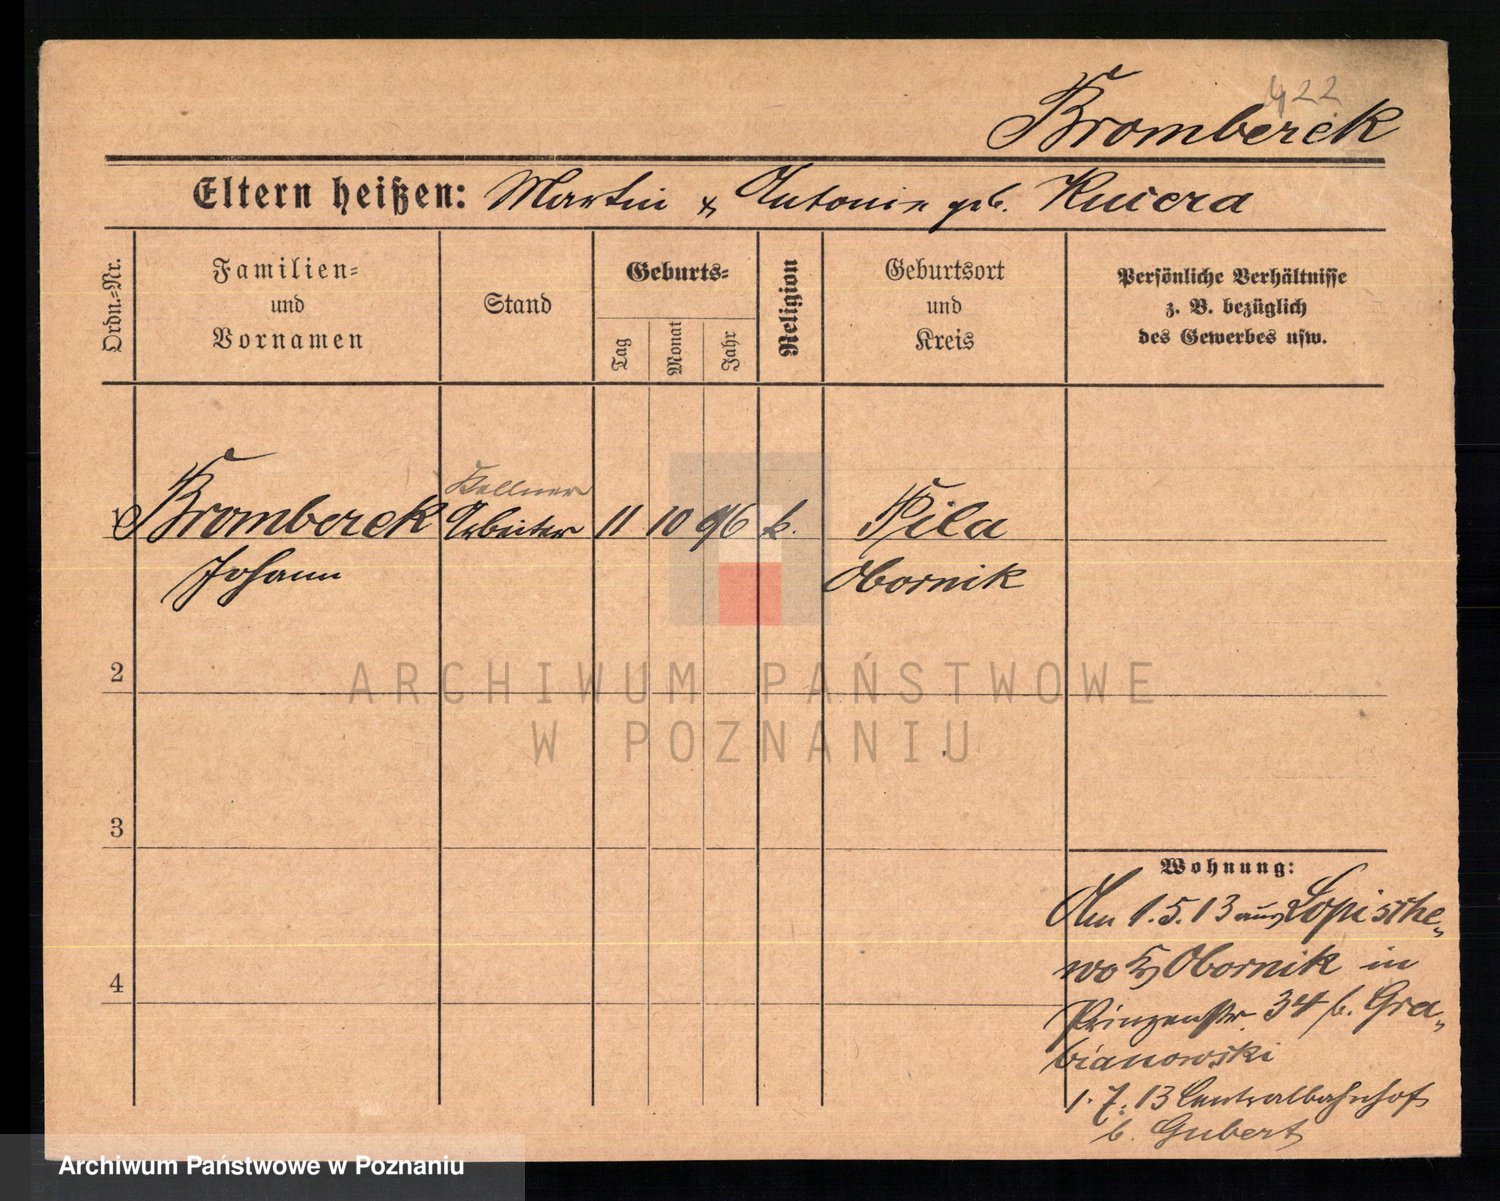 422
Bromberek
Eltern heißen: Martin & Antonie geb. Kniera
Ordn.=Nr.
Familien=
und
Vornamen
Stand
Geburts=
Tag
Monat
Jahr
Religion
Geburtsort
und
Kreis
Persönliche Verhältnisse
z. B. bezüglich
des Gewerbes usw.
Kellner
1 Bromberek Arbeiter 11 10 96 k. Pila
Johann Obornik
2
ARCHIWUM PAŃSTWOWE
W POZNANIU
3
Wohnung:
Am 1.5.13 aus Lopische-
wo Obornik in
4
Prinzenstr. 34 b. Gra-
bianowski
1. 7. 13 Centralbahnhof
b. Gubert
Archiwum Państwowe w Poznaniu